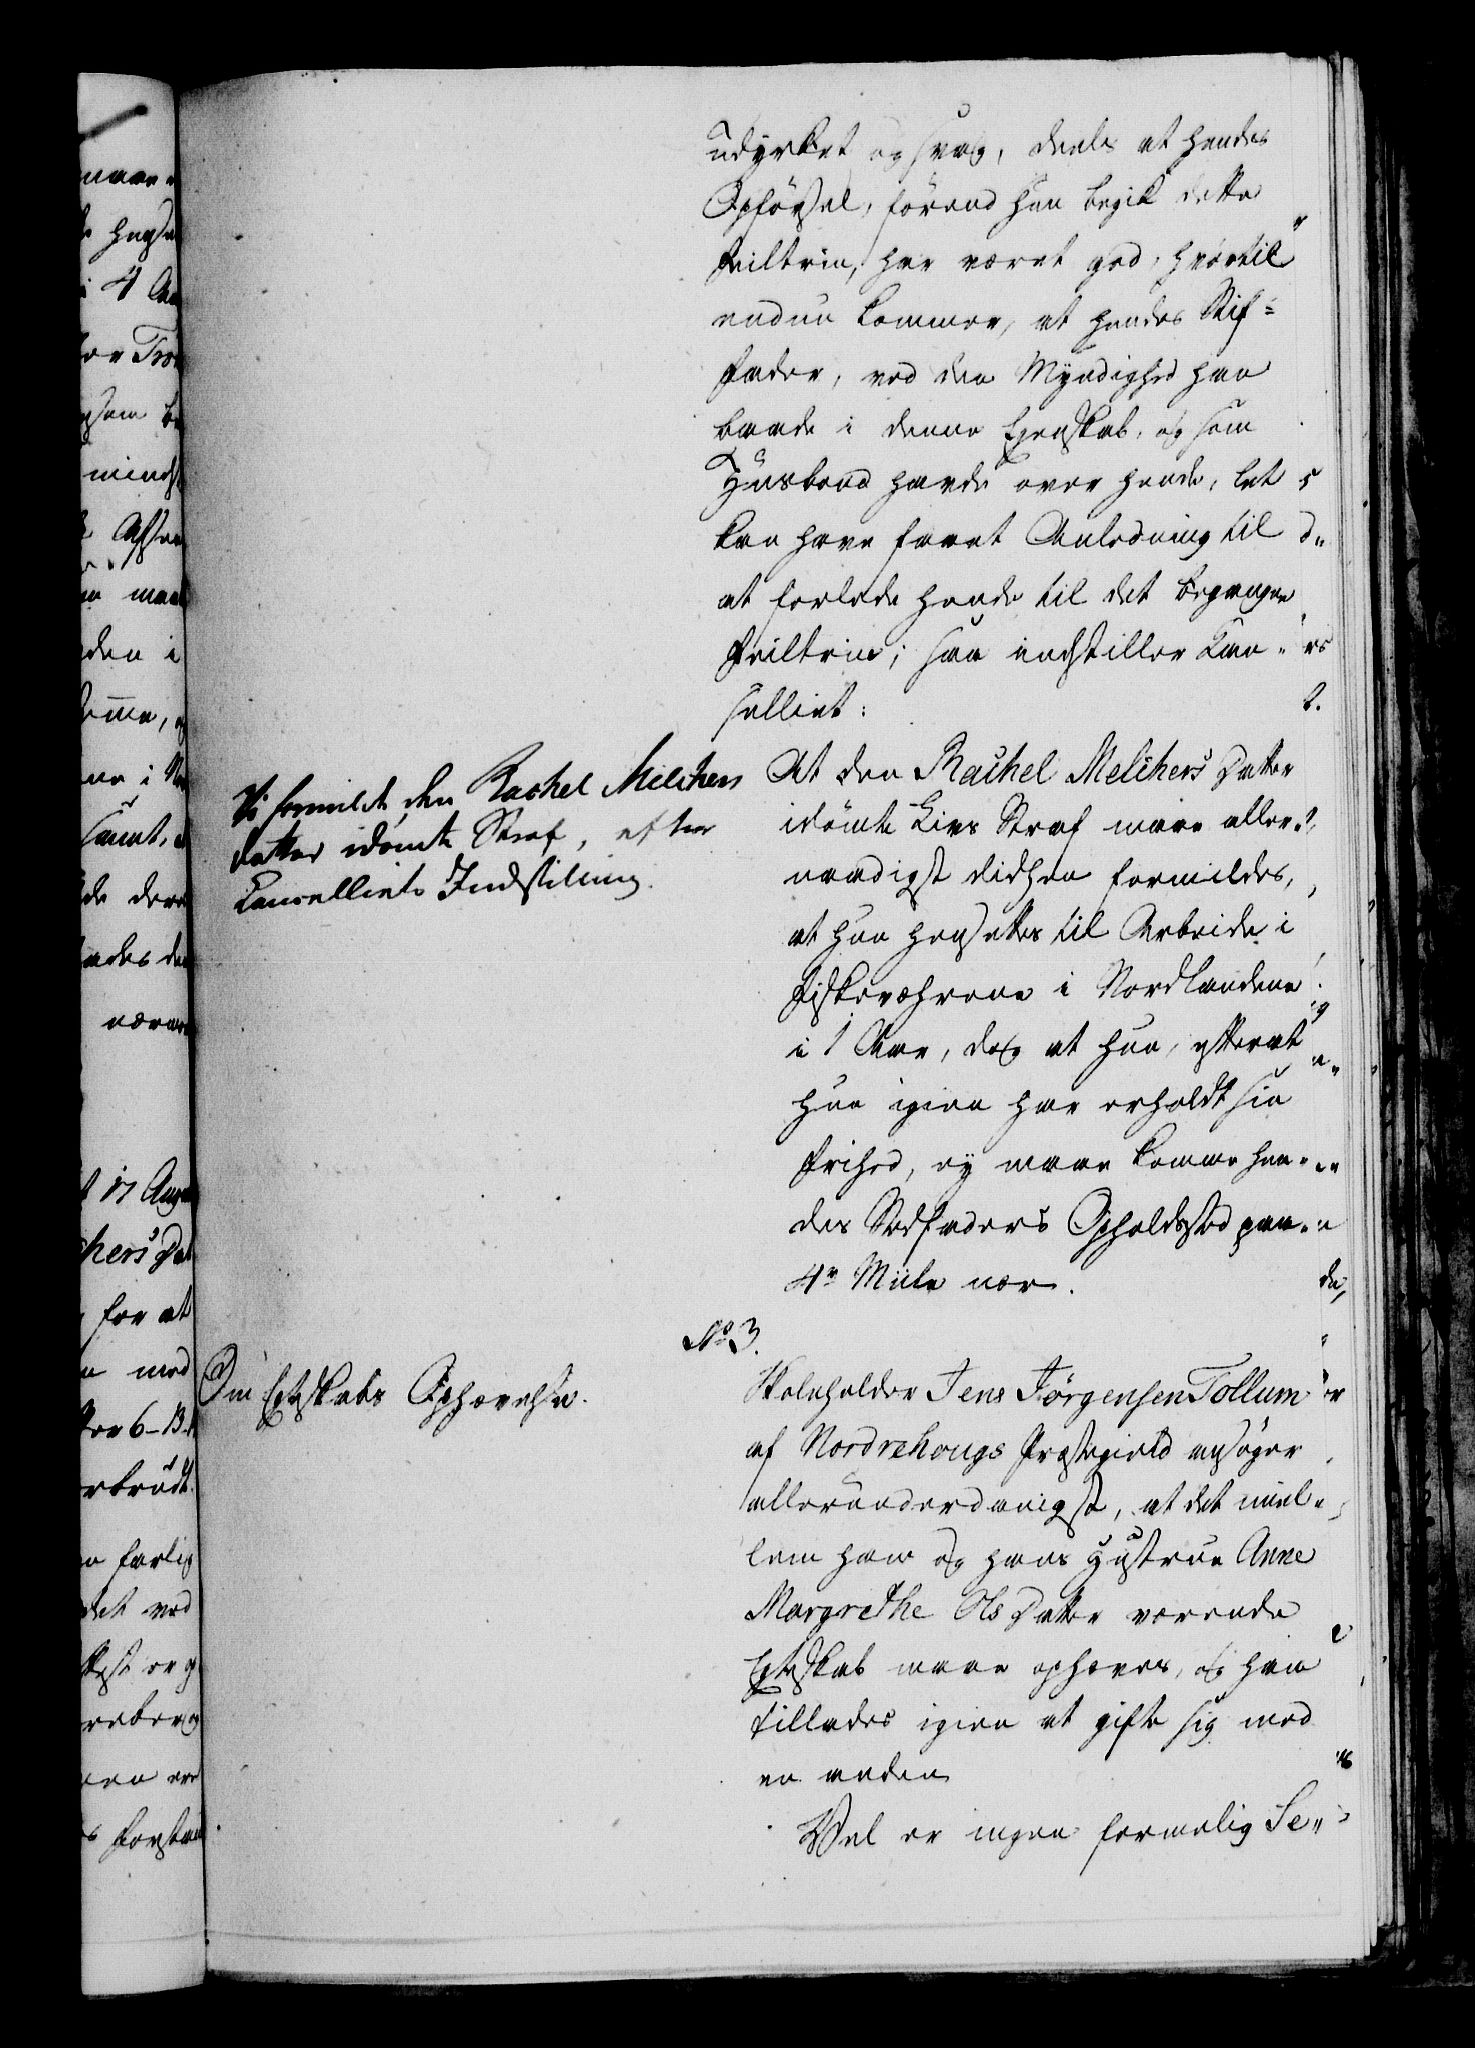 udyrket og svag, deels at hendes
Opförsel, förend hun begik dette
Feiltrin, har været god, hvortil
endnu kommer, at hendes Stif-
fader, ved den Myndighed han
baade i denne Egenskab, og som
Huusbond havde over hende, let
kan have faaet Anledning til
at forlede hende til det begangne
Feiltrin; saa indstiller Can-
celliet:
Vi formilde den Rachel Melchers
datter idömte Straf, efter
Cancelliets Indstilling.
At den Rachel Melchers Datter
idömte Livs Straf maae aller-
naadigst didhen formildes,
at hun hensættes til Arbeide i
Fiskeværene i Nordlandene
i 1 Aar, dog at hun, efterat
hun igien har erholdt sin
Frihed, ey maae komme hen-
des Stedfaders Opholdsted paa
4re Miile nær.
No 3.
Om Egteskabs Ophævelse.
Skoleholder Jens Jörgensen Tollum
af Nordrehougs Præstegield ansöger
allerunderdanigst, at det mel-
lem ham og hans Hustrue Anne
Margrethe Ols Datter værende
Egteskab maae ophæves, og ham
tillades igien at gifte sig med
en anden
Vel er ingen formelig Se-